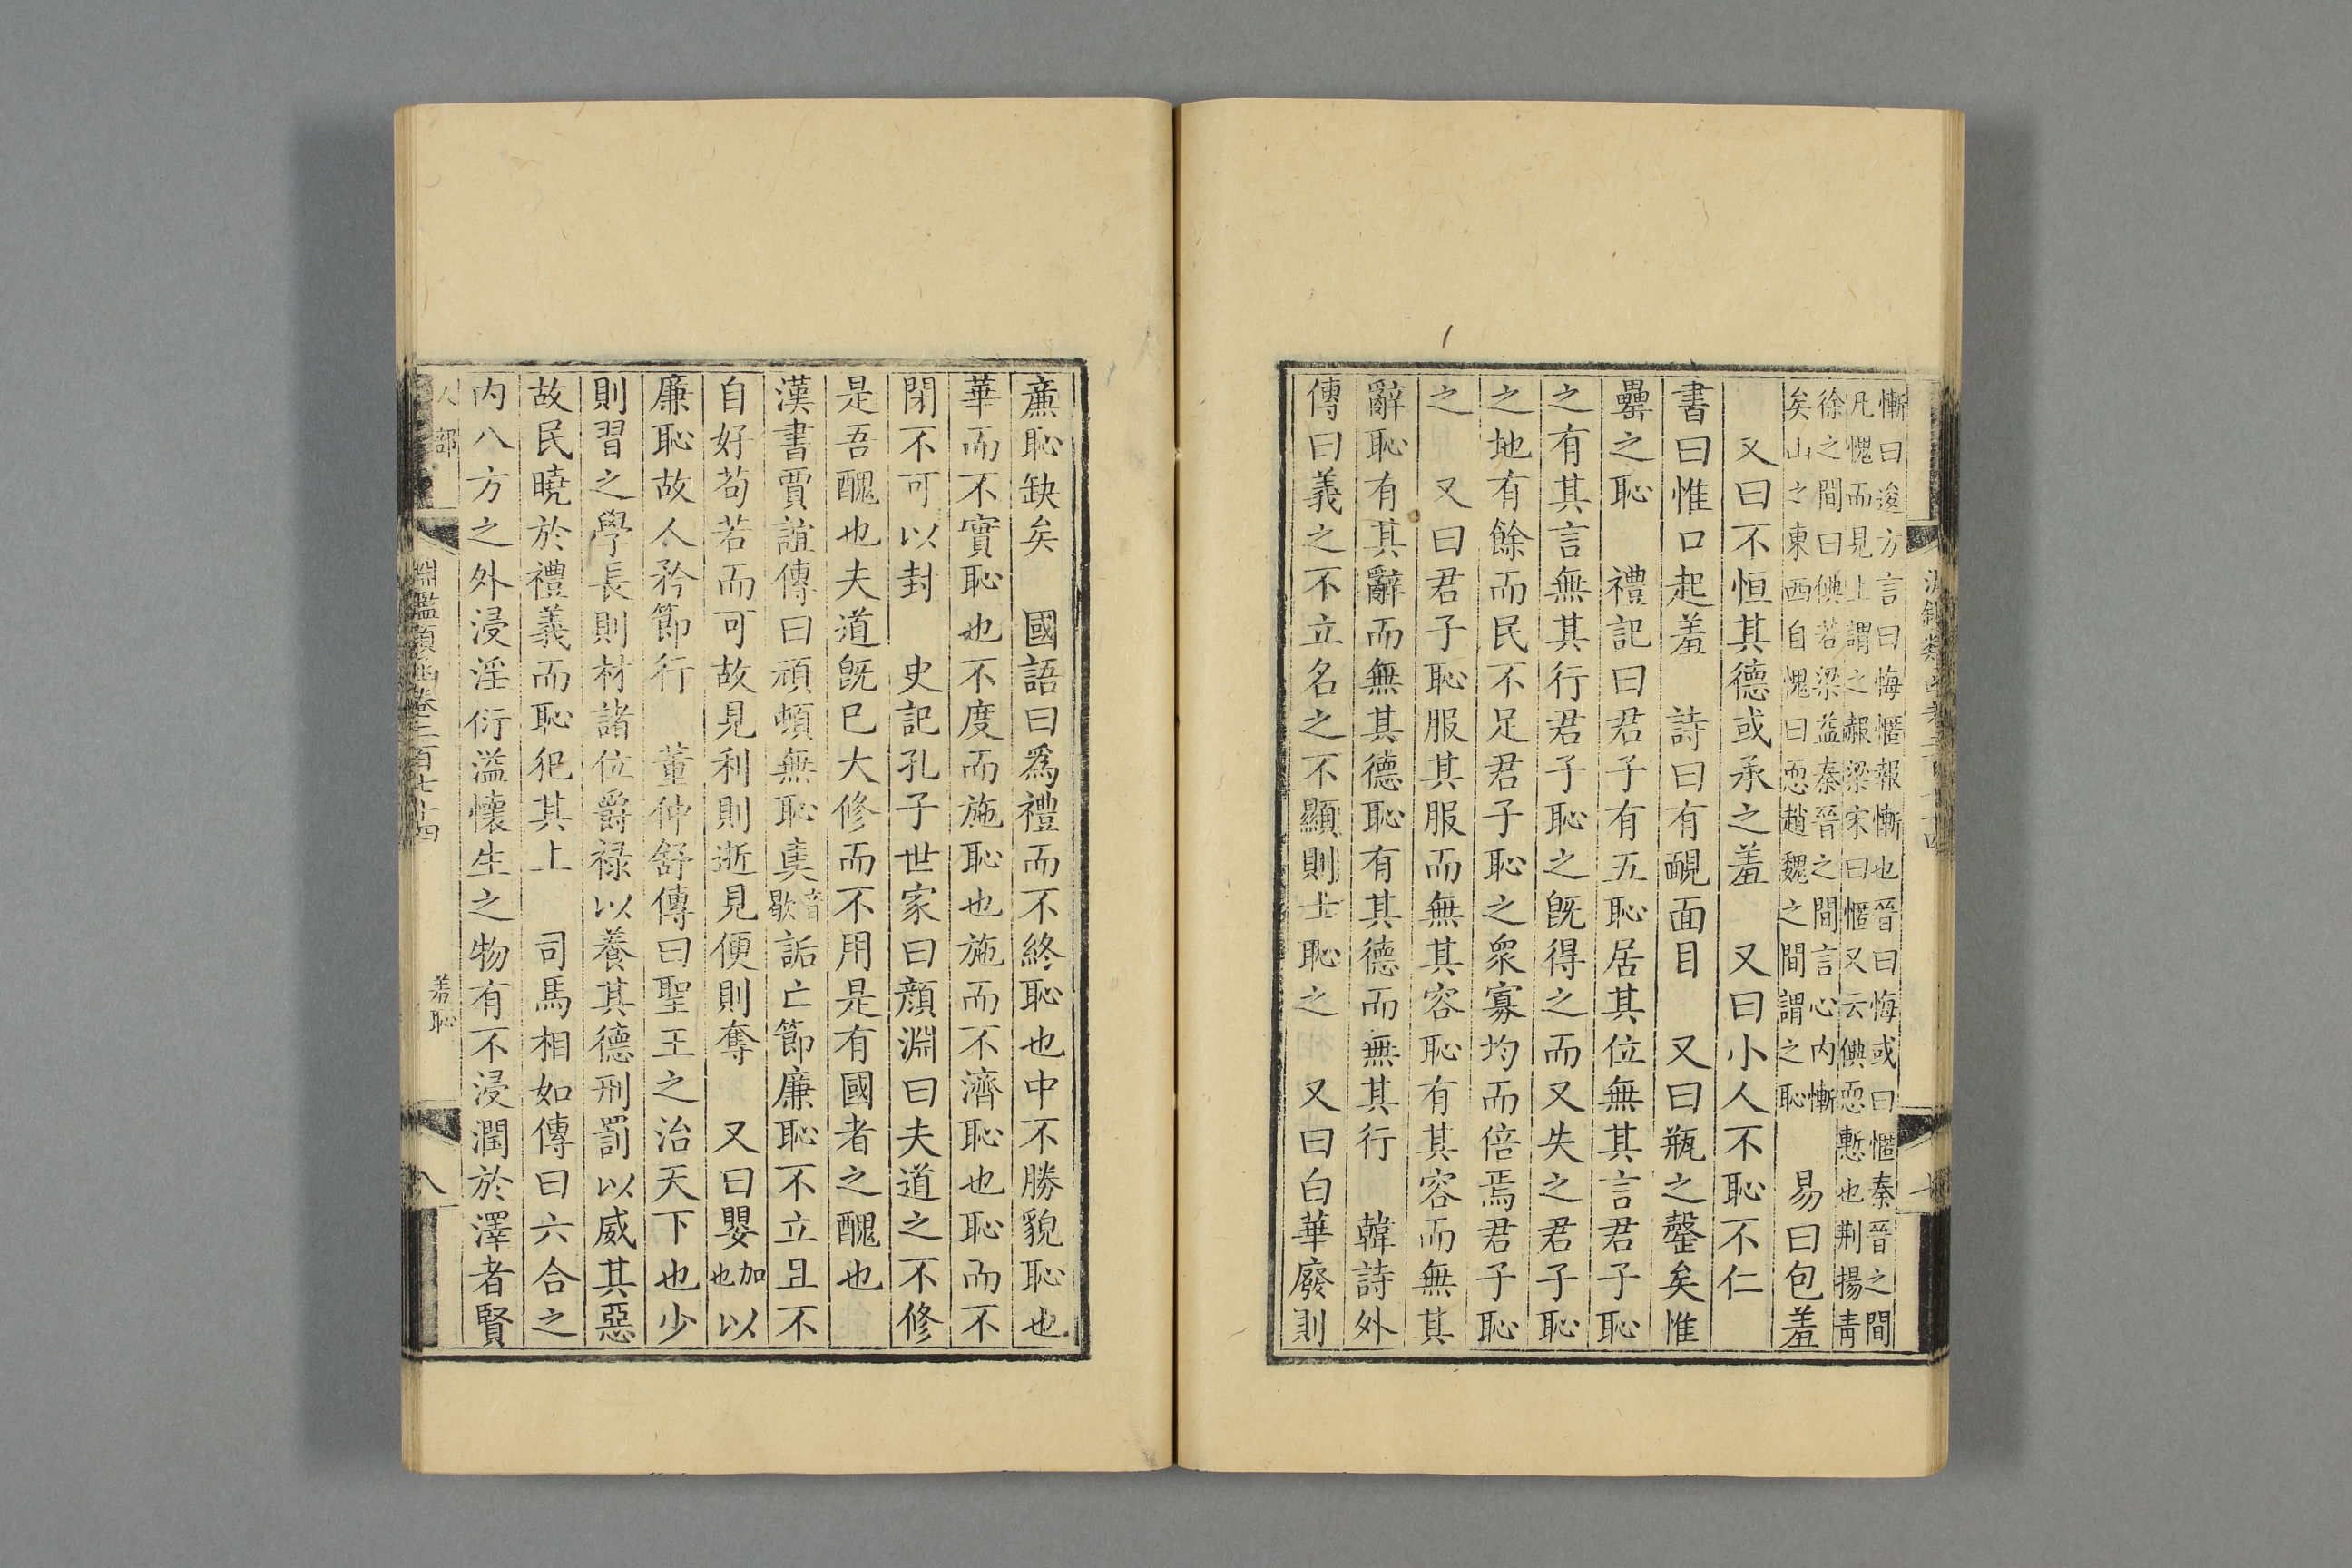 慚曰逡方言曰悔㥾報慚也晉曰悔或曰㥾秦晉之間
凡愧而見上謂之赧梁宋曰㥾又云㥏恧慙也荆揚青
徐之間曰㥏若梁益秦晉之間言心内慚
矣山之東西自愧曰恧趙魏之間謂之恥　易曰包羞
又曰不恒其德或承之羞　又曰小人不恥不仁
書曰惟口起羞　詩曰有靦面目　又曰瓶之罄矣惟
罍之恥　禮記曰君子有五恥居其位無其言君子恥
之有其言無其行君子恥之旣得之而又失之君子恥
之地有餘而民不足君子恥之衆寡均而倍焉君子恥
之　又曰君子恥服其服而無其容恥有其容而無其
辭恥有其辭而無其德恥有其德而無其行　韓詩外
傳曰義之不立名之不顯則士恥之　又曰白華廢則
廉恥缺矣　國語曰爲禮而不終恥也中不勝貌恥也
華而不實恥也不度而施恥也施而不濟恥也恥而不
閉不可以封　史記孔子世家曰顏淵曰夫道之不修
是吾醜也夫道旣已大修而不用是有國者之醜也
漢書賈誼傳曰頑頓無恥奊音歇詬亡節廉恥不立且不
自好苟若而可故見利則逝見便則奪　又曰嬰加也以
廉恥故人矜節行　董仲舒傳曰聖王之治天下也少
則習之學長則材諸位爵祿以養其德刑罰以威其惡
故民曉於禮義而恥犯其上　司馬相如傳曰六合之
内八方之外浸淫衍溢懷生之物有不浸潤於澤者賢
人部　淵鑑類函卷三百七十四　羞恥　八